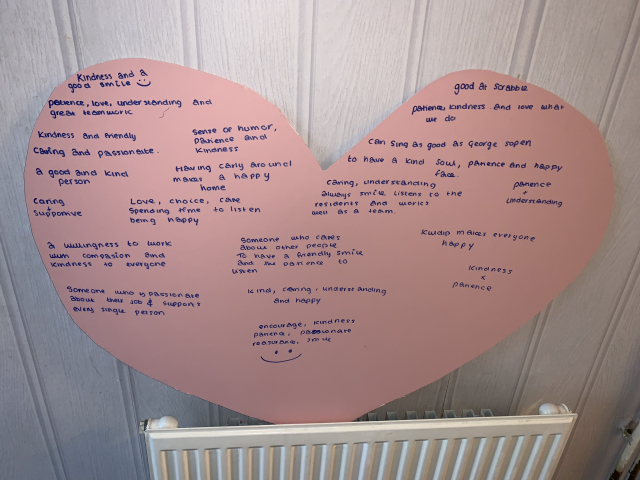 Kindness and a
good smile
patience, love, understanding and
great teamwork
Kindness and friendly
Caring and passionate.
Sense of humor,
patience and
Kindness
a good and kind
person
Having carly around
makes a happy
home
Caring
+
Supportive
Love, choice, care
Spending time to listen
being happy
a willingness to work
with compasion and
kindness to everyone
Someone who cares
about other people
To have a friendly smile
and the patience to
listen
Someone who is passionate
about their job & supports
every single person
kind, caring, understanding
and happy
encourage, kindness
patience, passionate
reassurance, smile
good at Scrabble
patience, kindness and love what
we do
Can sing as good as George sopen
to have a kind soul, patience and happy
face.
Caring, understanding
always smile listens to the
residents and works
well as a team.
patience
+
understanding
Kuldip makes everyone
happy
kindness
&
patience